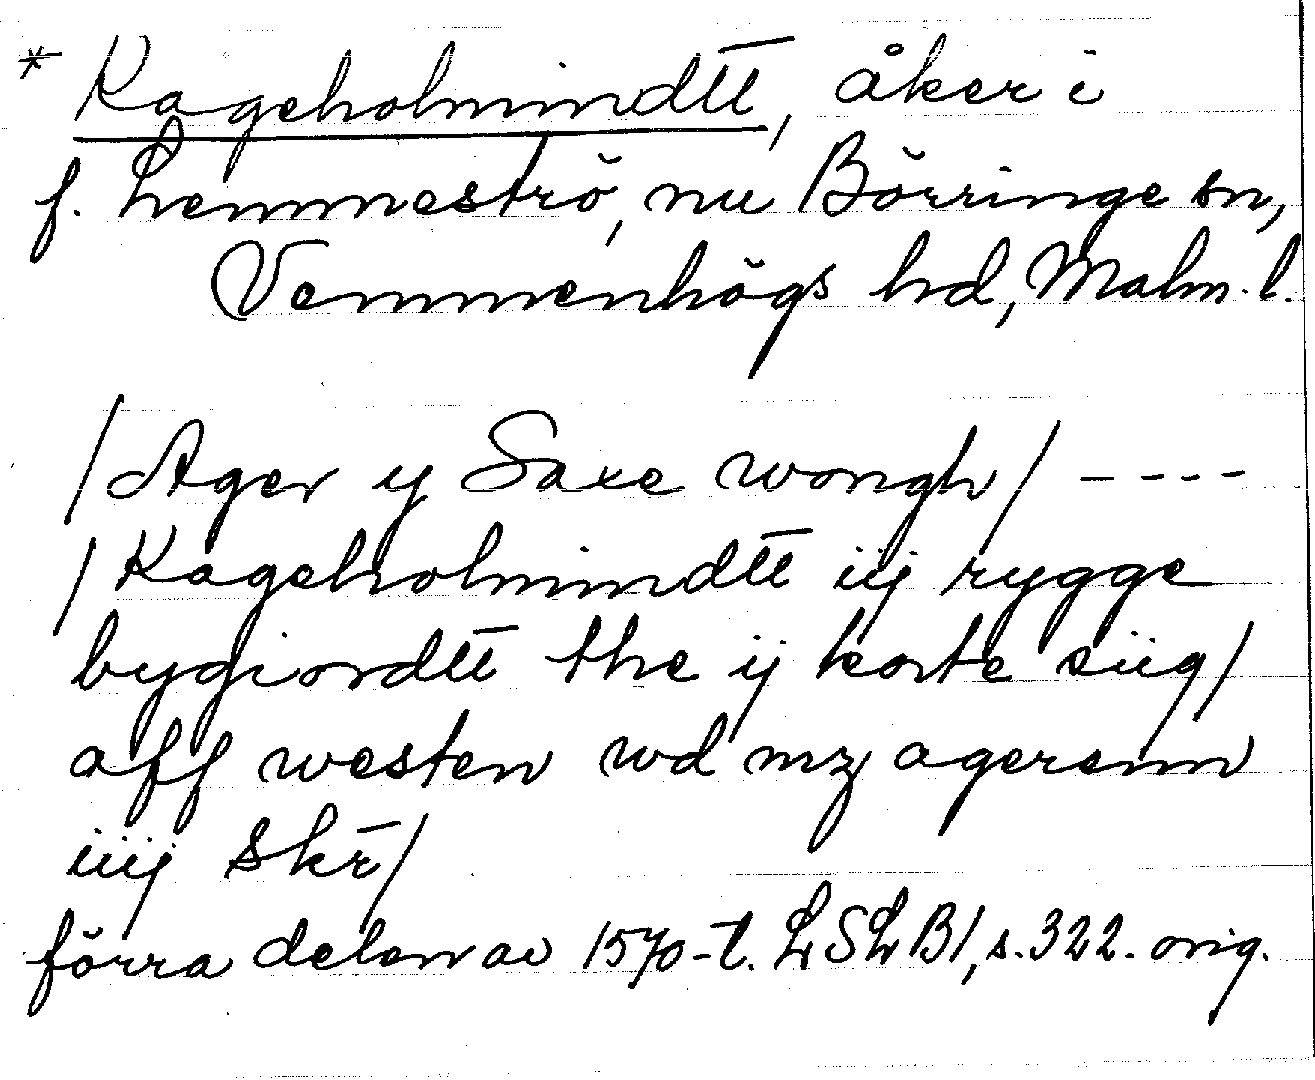 * Kageholmindtt̄, åker i
f. Lemmeströ, nu Börringe sn,
Vemmenhögs hd, Malm. l.
/Ager y Saxe wongh/ ----
/Kageholmindtt̄ iij rygge
bygiordtt̄ the ij korte siig/
aff westen wd mz agerenn
iiij skr̄/
förra delen av 1570-t. LSLB1, s. 322. orig.